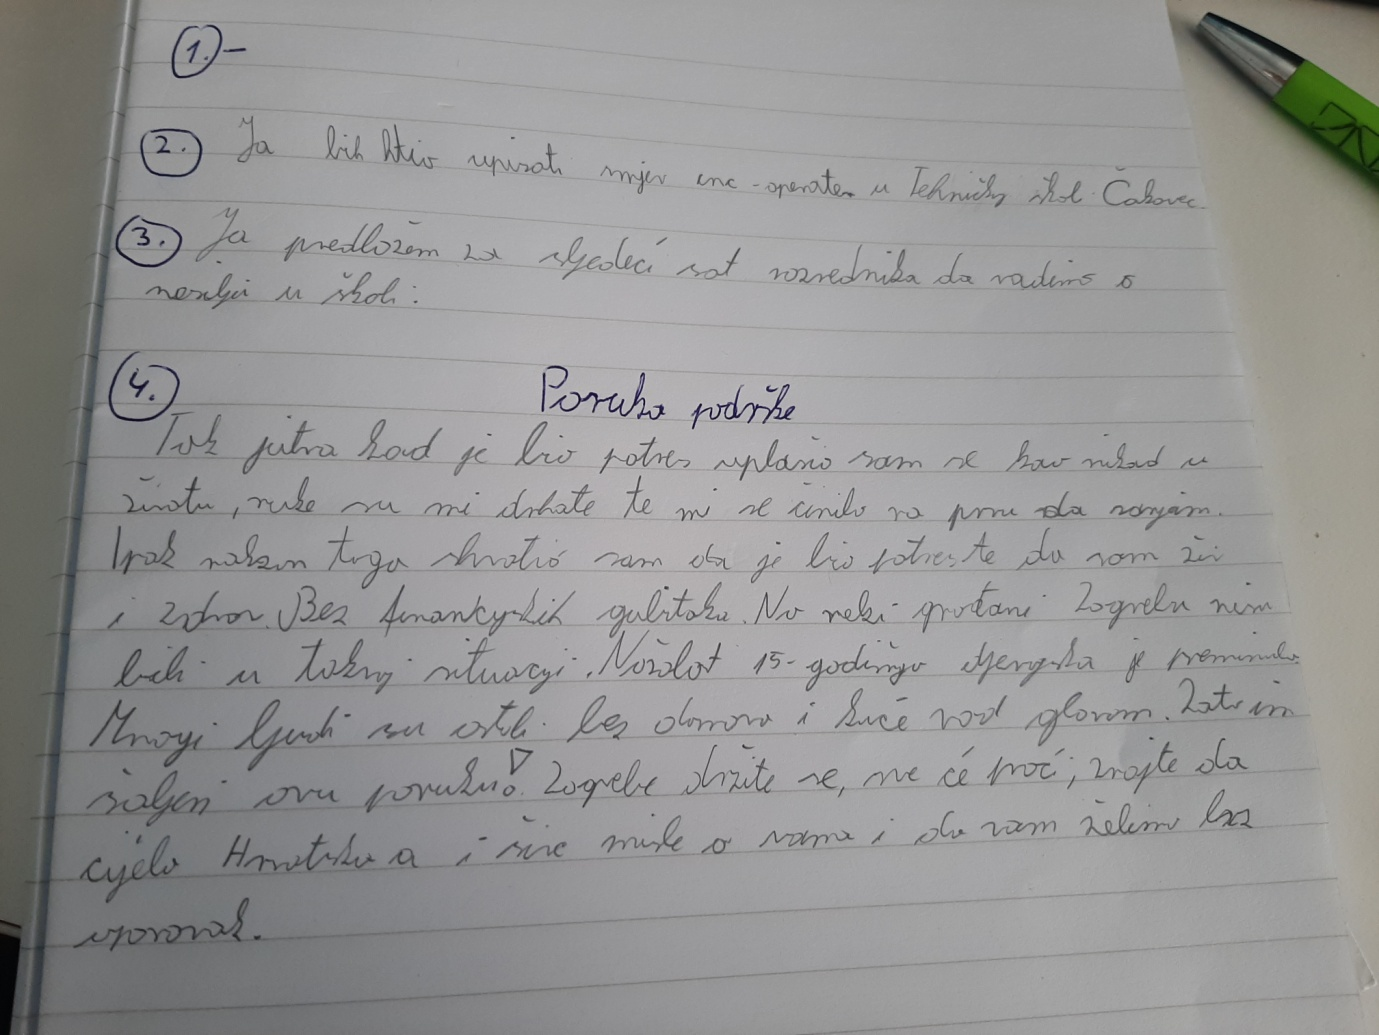 1. -
2. Ja bih htio upisati smjer cnc-operater u Tehničkoj školi Čakovec
3. Ja predložem za sljedeći sat razrednika da radimo o
nasilju u školi.
4. Poruka podrške
Tok jutra kad je bio potres uplašio sam se kao nikad u
životu, ruke su mi drhtate te mi se činilo na prvu da sanjam.
Ipak nakon toga shvatio sam da je bio potres te da sam živ
i zdrav. Bez financijskih gubitaka. No neki građani Zagreba nisu
bili u takvoj situaciji. Nažalost 15-godišnja djevojka je preminula.
Mnogi ljudi su ostali bez domova i kuće nad glavom. Zato im
šaljem ovu poruku: Zagrebe držite se, sve će proć, znajte da
cijela Hrvatska a i šire misle o vama i da vam želimo brz
oporavak.